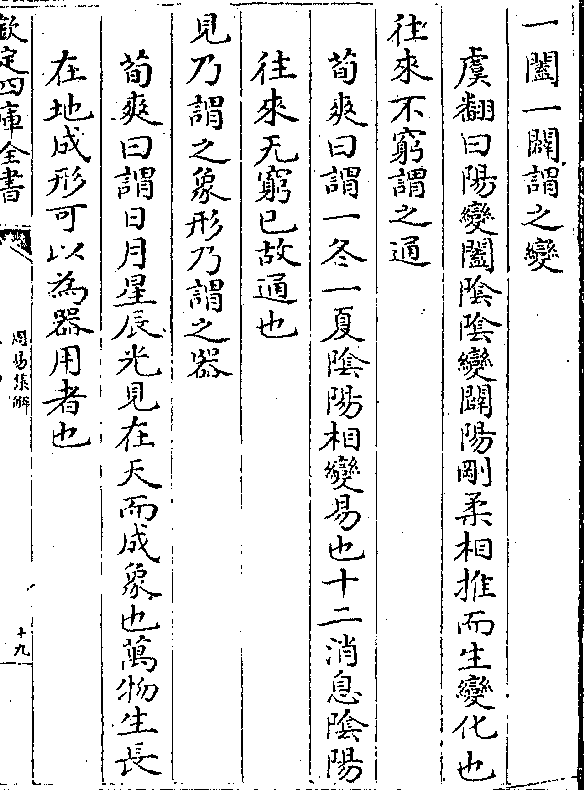 一闔一闢謂之變
虞翻曰陽變闔陰陰變闢陽剛柔相推而生變化也
往來不窮謂之通
荀爽曰謂一冬一夏陰陽相變易也十二消息陰陽
往來无窮已故通也
見乃謂之象形乃謂之器
荀爽曰謂日月星辰光見在天而成象也萬物生長
在地成形可以為器用者也
欽定四庫全書
周易集解
十九